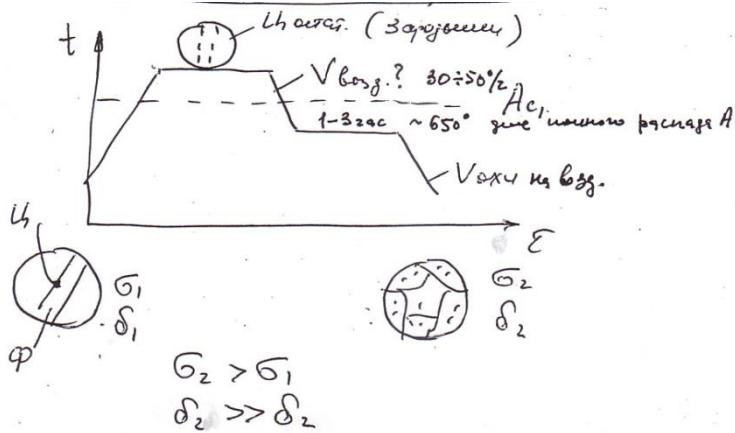 t
Ц остат. (Зародыши)
V возд.? 30÷50°/г
Ac₁
1-3 час ~650° для полного распада А
V охл на возд.
τ
Ц
Ф
σ₁
δ₁
σ₂
δ₂
σ₂ > σ₁
δ₂ >> δ₂